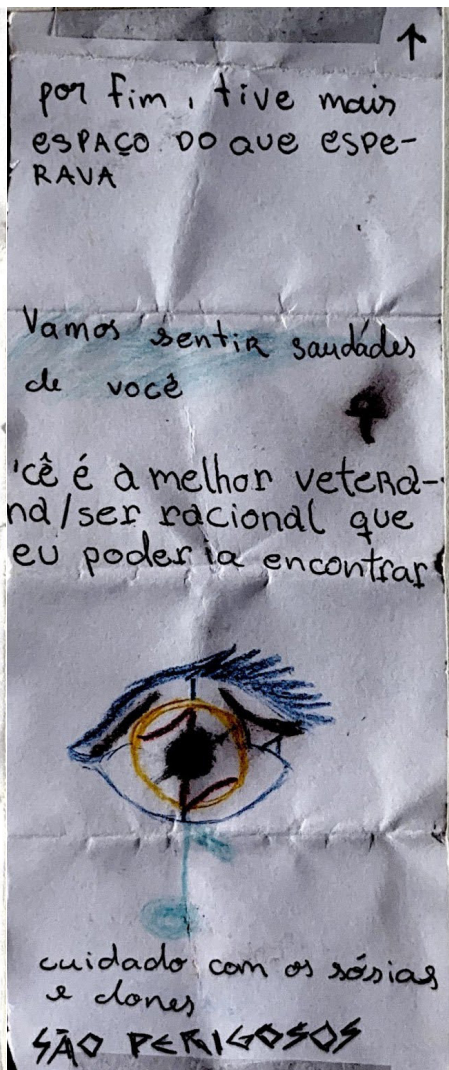 por fim, tive mais
ESPAÇO DO QUE ESPE-
RAVA
Vamos sentir saudades
de você
'cê é a melhor vetera-
na/ser racional que
eu poderia encontrar
cuidado com os sósias
e clones
SÃO PERIGOSOS